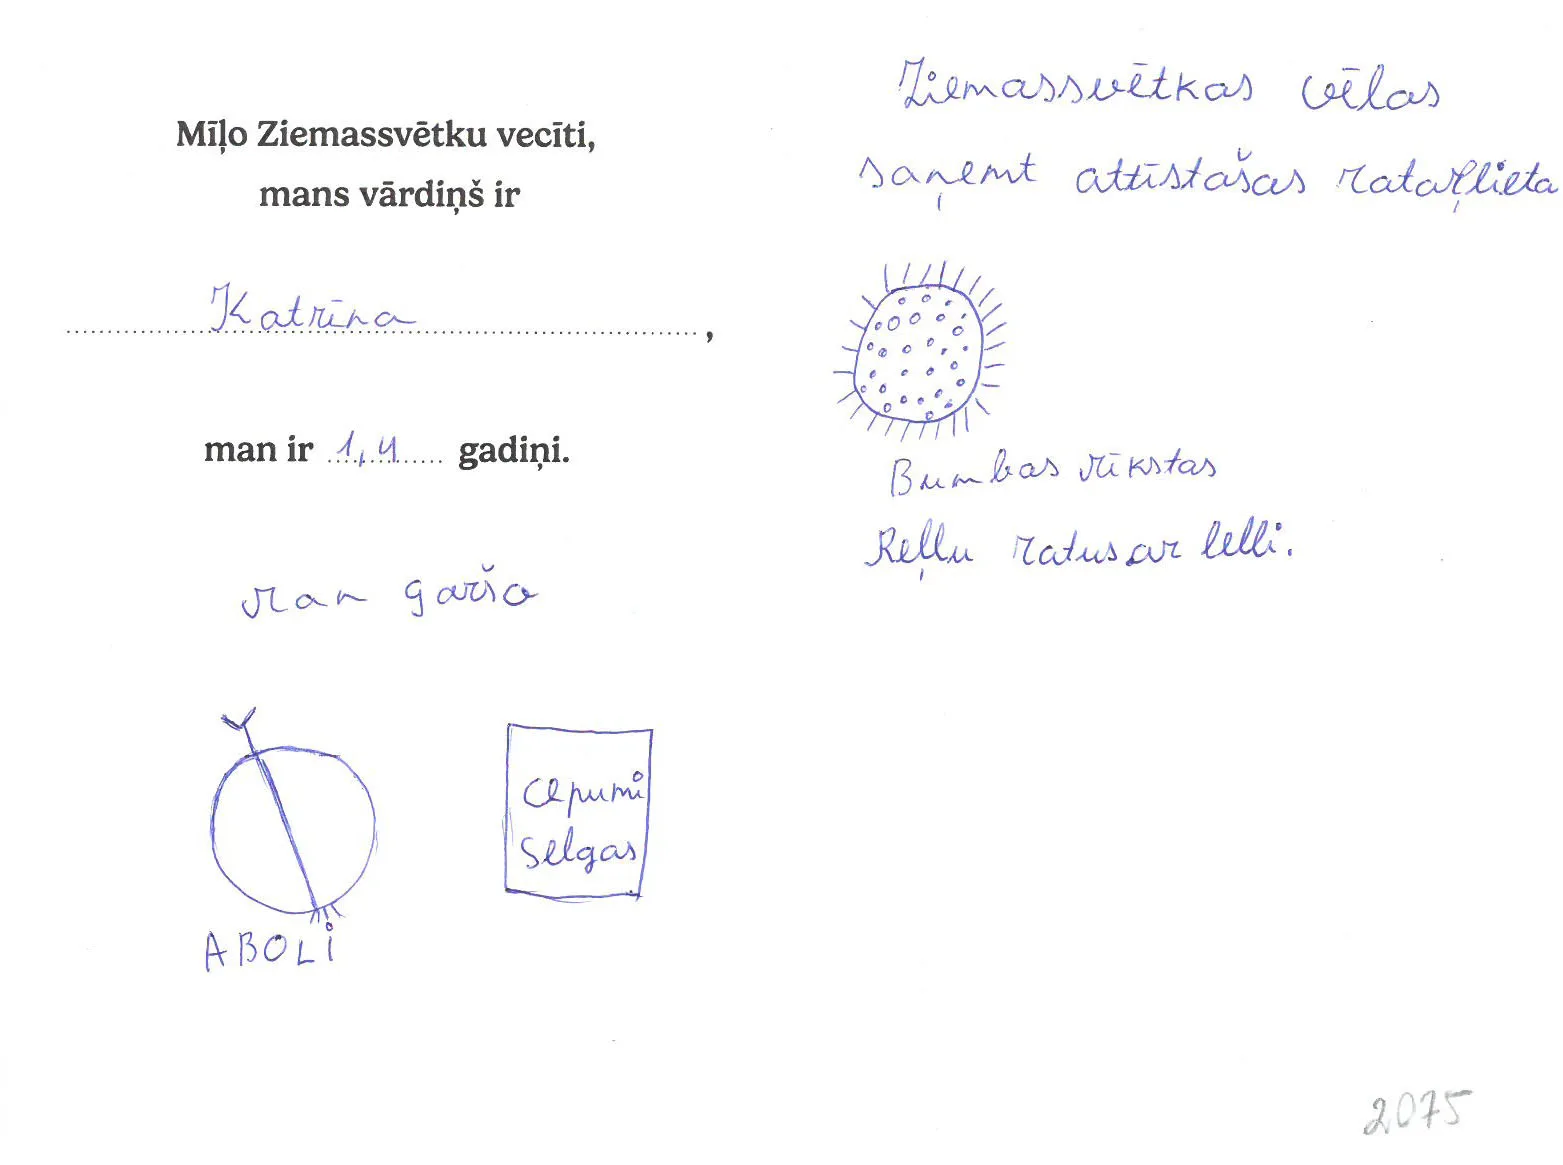 Mīļo Ziemassvētku vecīti,
mans vārdiņš ir
Katrīna,
man ir 1,4 gadiņi.
Man garšo
cepumi
Selgas
ABOLi
Ziemassvētkas vēlas
saņemt attīstašas rataļlieta
Bumbas rīkstas
Reļļu ratus ar lelli.
2075